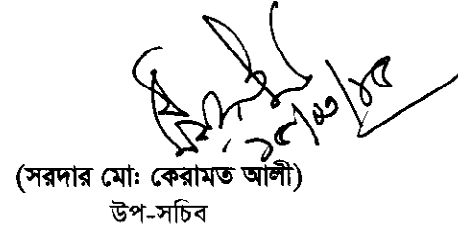 (সরদার মো: কেরামত আলী)
উপ-সচিব